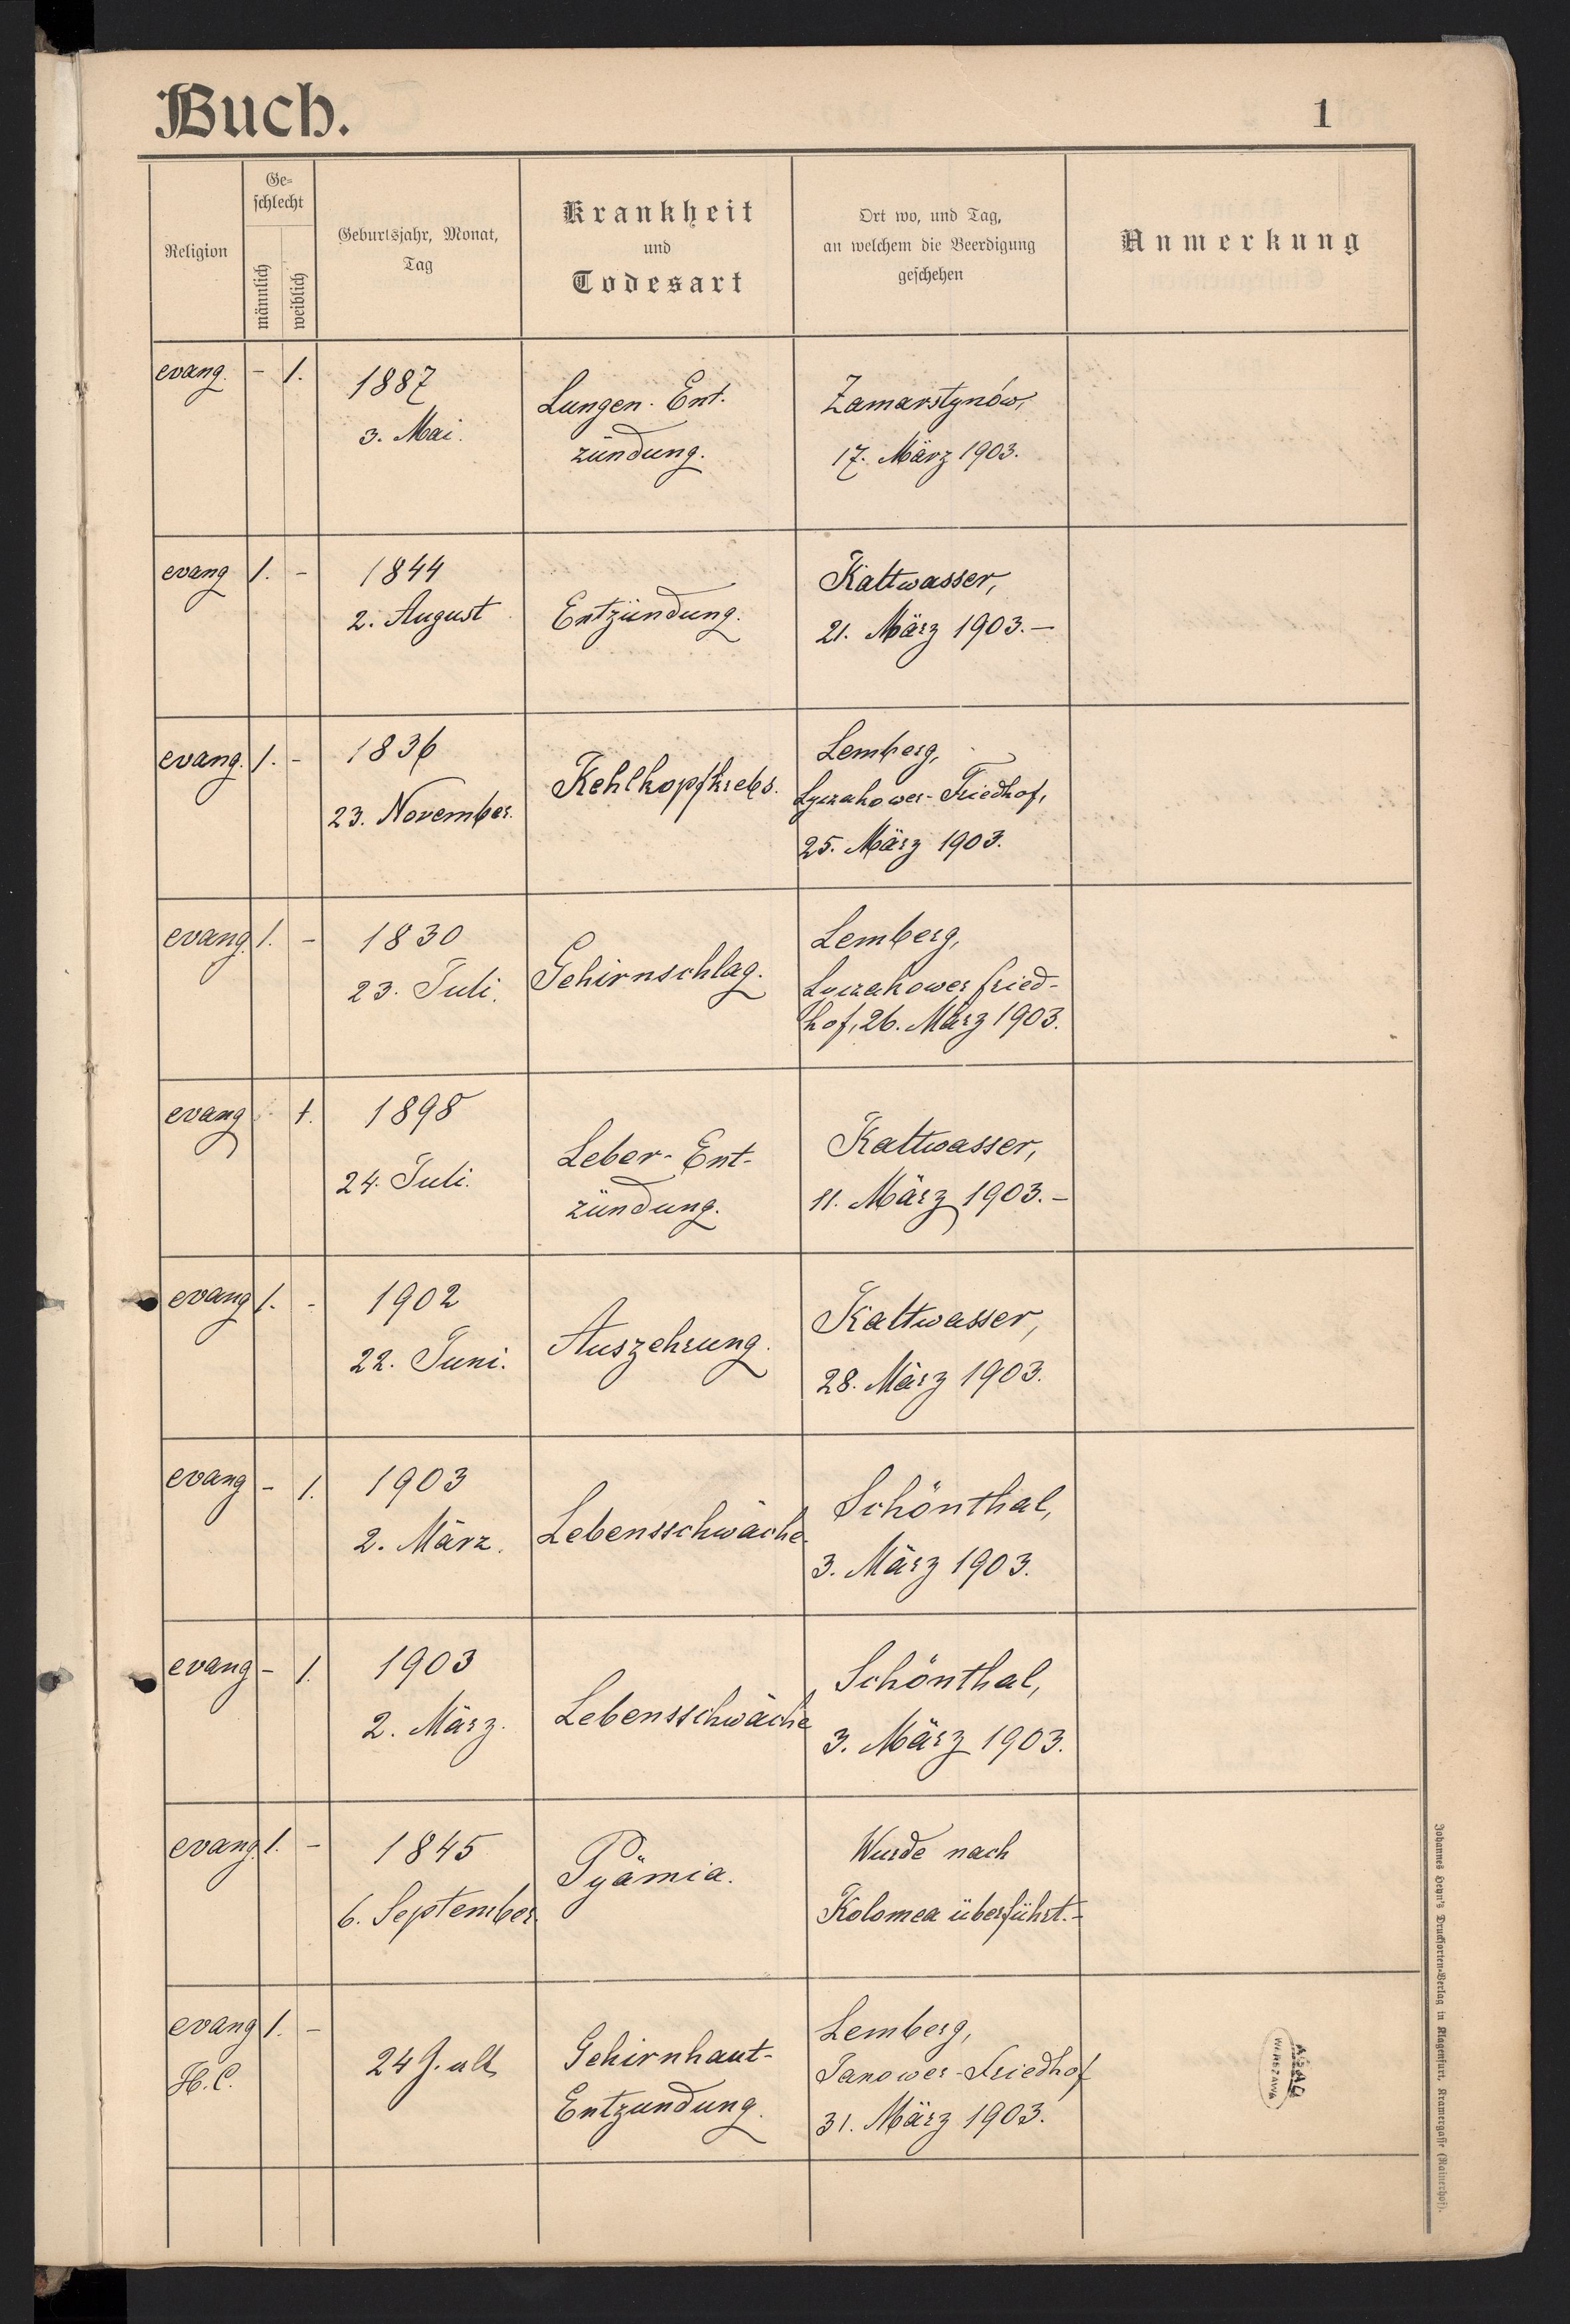 Buch.
1
Religion
Ge-
schlecht
männlich
weiblich
Geburtsjahr, Monat,
Tag
Krankheit
und
Todesart
Ort wo, und Tag,
an welchem die Beerdigung
geschehen
Anmerkung
evang. - 1.
1887
3. Mai.
Lungen-Ent-
zündung.
Zamarstynów,
17. März 1903.
evang 1. -
1844
2. August
Entzündung.
Kaltwasser,
21. März 1903.-
evang. 1. -
1836
23. November.
Kehlkopfkrebs.
Lemberg,
Lyczakower-Friedhof,
25. März 1903.
evang. 1. -
1830
23. Juli.
Gehirnschlag.
Lemberg,
Lyczakower fried-
hof, 26. März 1903.
evang 1.
1898
24. Juli.
Leber-Ent-
zündung.
Kaltwasser,
11. März 1903.-
evang 1. -
1902
22. Juni.
Auszehrung.
Kaltwasser,
28. März 1903.
evang - 1.
1903
2. März.
Lebensschwäche.
Schönthal,
3. März 1903.
evang - 1.
1903
2. März.
Lebensschwäche
Schönthal,
3. März 1903.
evang. 1. -
1845
6. September.
Pyämia.
Wurde nach
Kolomea überführt.-
evang 1. -
H.C.
24 J. alt
Gehirnhaut-
Entzundung.
Lemberg,
Janower-Friedhof
31. März 1903.
AGAD
WARSZAWA
Johannes Heyn's Drucksorten-Verlag in Klagenfurt, Kramergasse (Rainerhof).